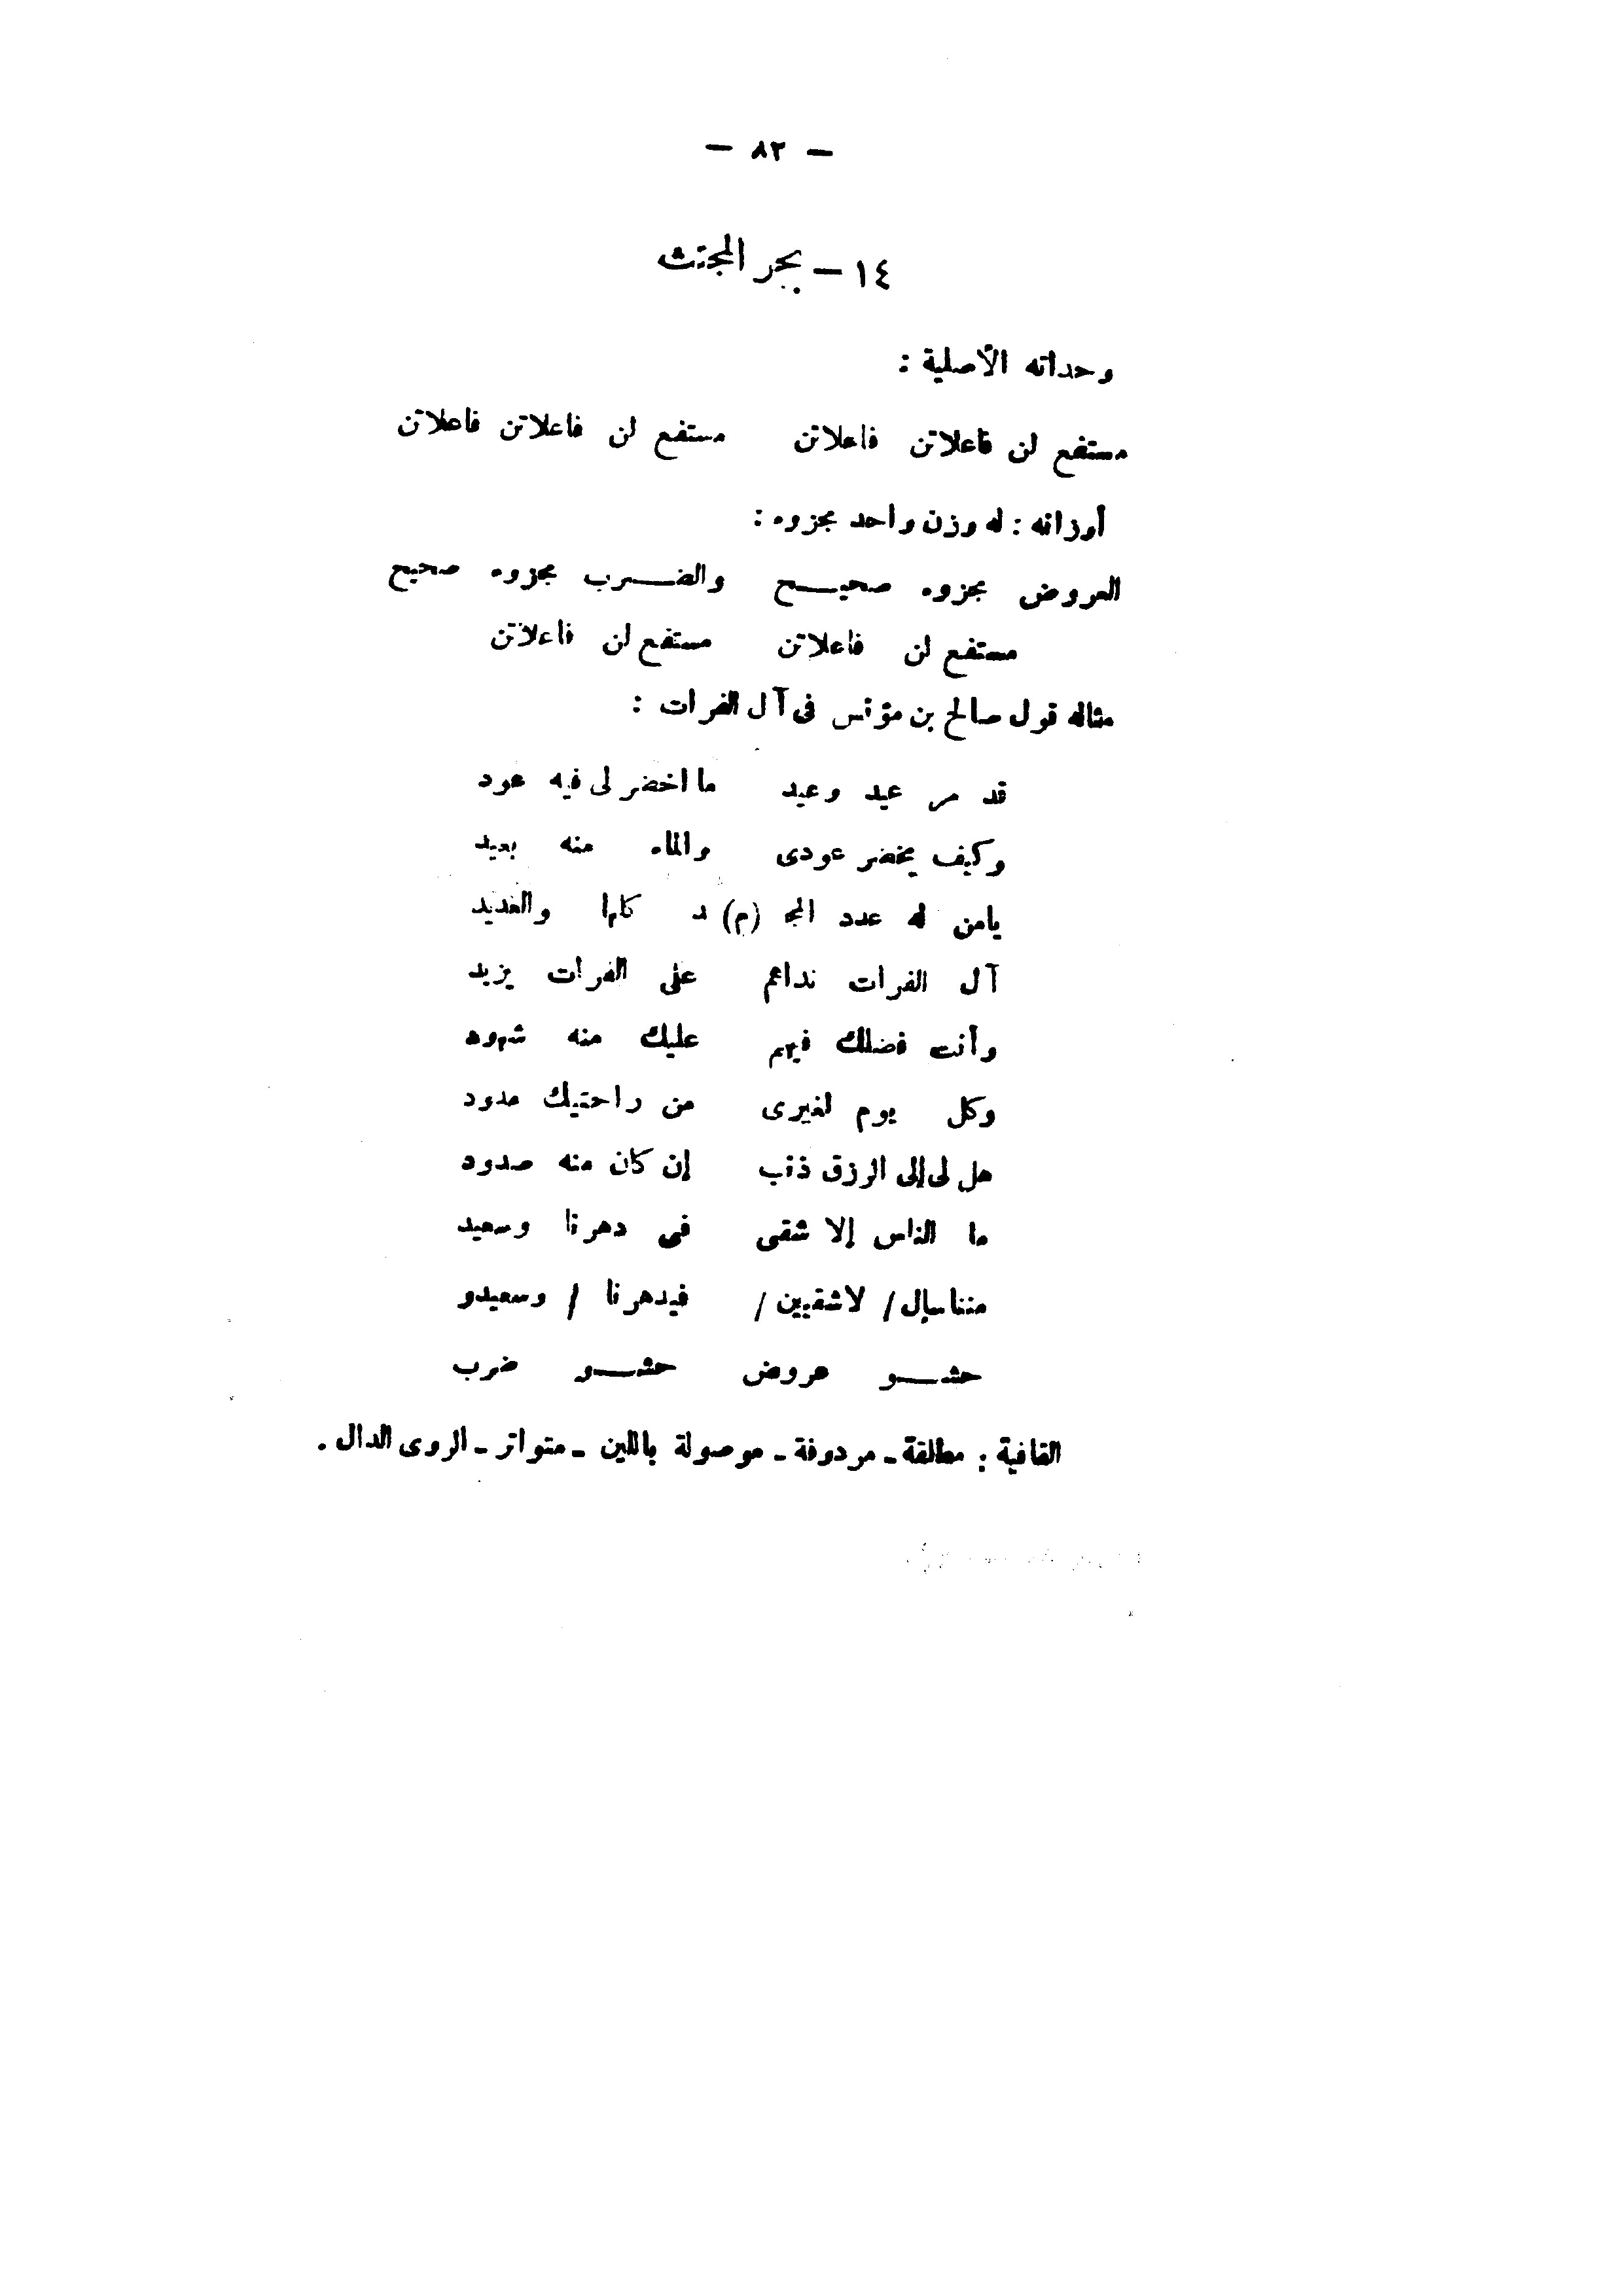 — ٨٢ —
١٤ — بحر المجتث
وحداته الأصلية :
مستفع لن فاعلاتن فاعلاتن مستفع لن فاعلاتن فاعلاتن
أوزانه : له وزن واحد مجزوء :
العروض مجزوء صحيـــح والضـــرب مجزوء صحيح
مستفع لن فاعلاتن مستفع لن فاعلاتن
مثاله قول صالح بن مؤنس فى آل الفرات :
قد مر عيد وعيد ما اخضر لى فيه عود
وكيف يخضر عودى والماء منه بعيد
يامن له عدد المجـ (م) د كلها والعديد
آل الفرات نداهم على الفرات يزيد
وأنت فضلك فيهم عليك منه شهود
وكل يوم لغيرى من راحتيك مدود
هل لى إلى الرزق ذنب إن كان منه صدود
ما الناس إلا شقى فى دهرنا وسعيد
منناسإل / لاشقيين / فيدهرنا / وسعيدو
حشـــو عروض حشـــو ضرب
القافية : مطلقة ـ مردوفة ـ موصولة باللين ـ متواتر ـ الروى الدال .